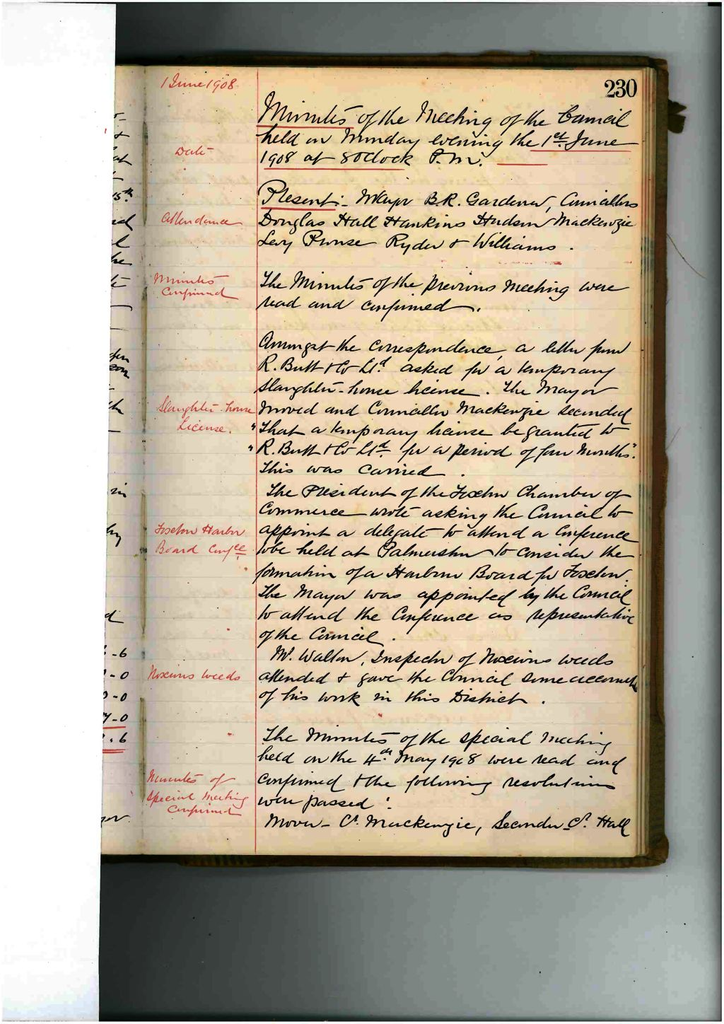 1 June 1908
230
Minutes of the Meeting of the Council
held on Monday evening the 1st June
Date
1908 at 8 oclock P.M.
Present:- Mayor B.R. Gardener, Councillors
Attendance
Douglas Hall Hankins Hudson Mackenzie
Levy Prouse Ryder & Williams.
Minutes
Confirmed
The Minutes of the previous Meeting were
read and confirmed.
Amongst the correspondence, a letter from
R. Butt & Co Ltd asked for a temporary
Slaughter-house license. The Mayor
Slaughter-house
License.
moved and Councillor Mackenzie seconded
"That a temporary licence be granted to
"R. Butt & Co Ltd for a period of four Months".
This was carried.
The President of the Foxton Chamber of
Commerce wrote asking the Council to
Foxton Harbor
Board Confce
appoint a delegate to attend a Conference
to be held at Palmerston to consider the
formation of a Harbour Board for Foxton.
The Mayor was appointed by the Council
to attend the Conference as representative
of the Council.
Mr. Walton, Inspector of Noxious weeds
Noxious weeds
attended & gave the Council some account
of his work in this District.
The Minutes of the special Meeting
held on the 4th May 1908 were read and
Minutes of
Special Meeting
Confirmed
confirmed & the following resolutions
were passed:
Mover - Cr. Mackenzie, Seconder Cr. Hall